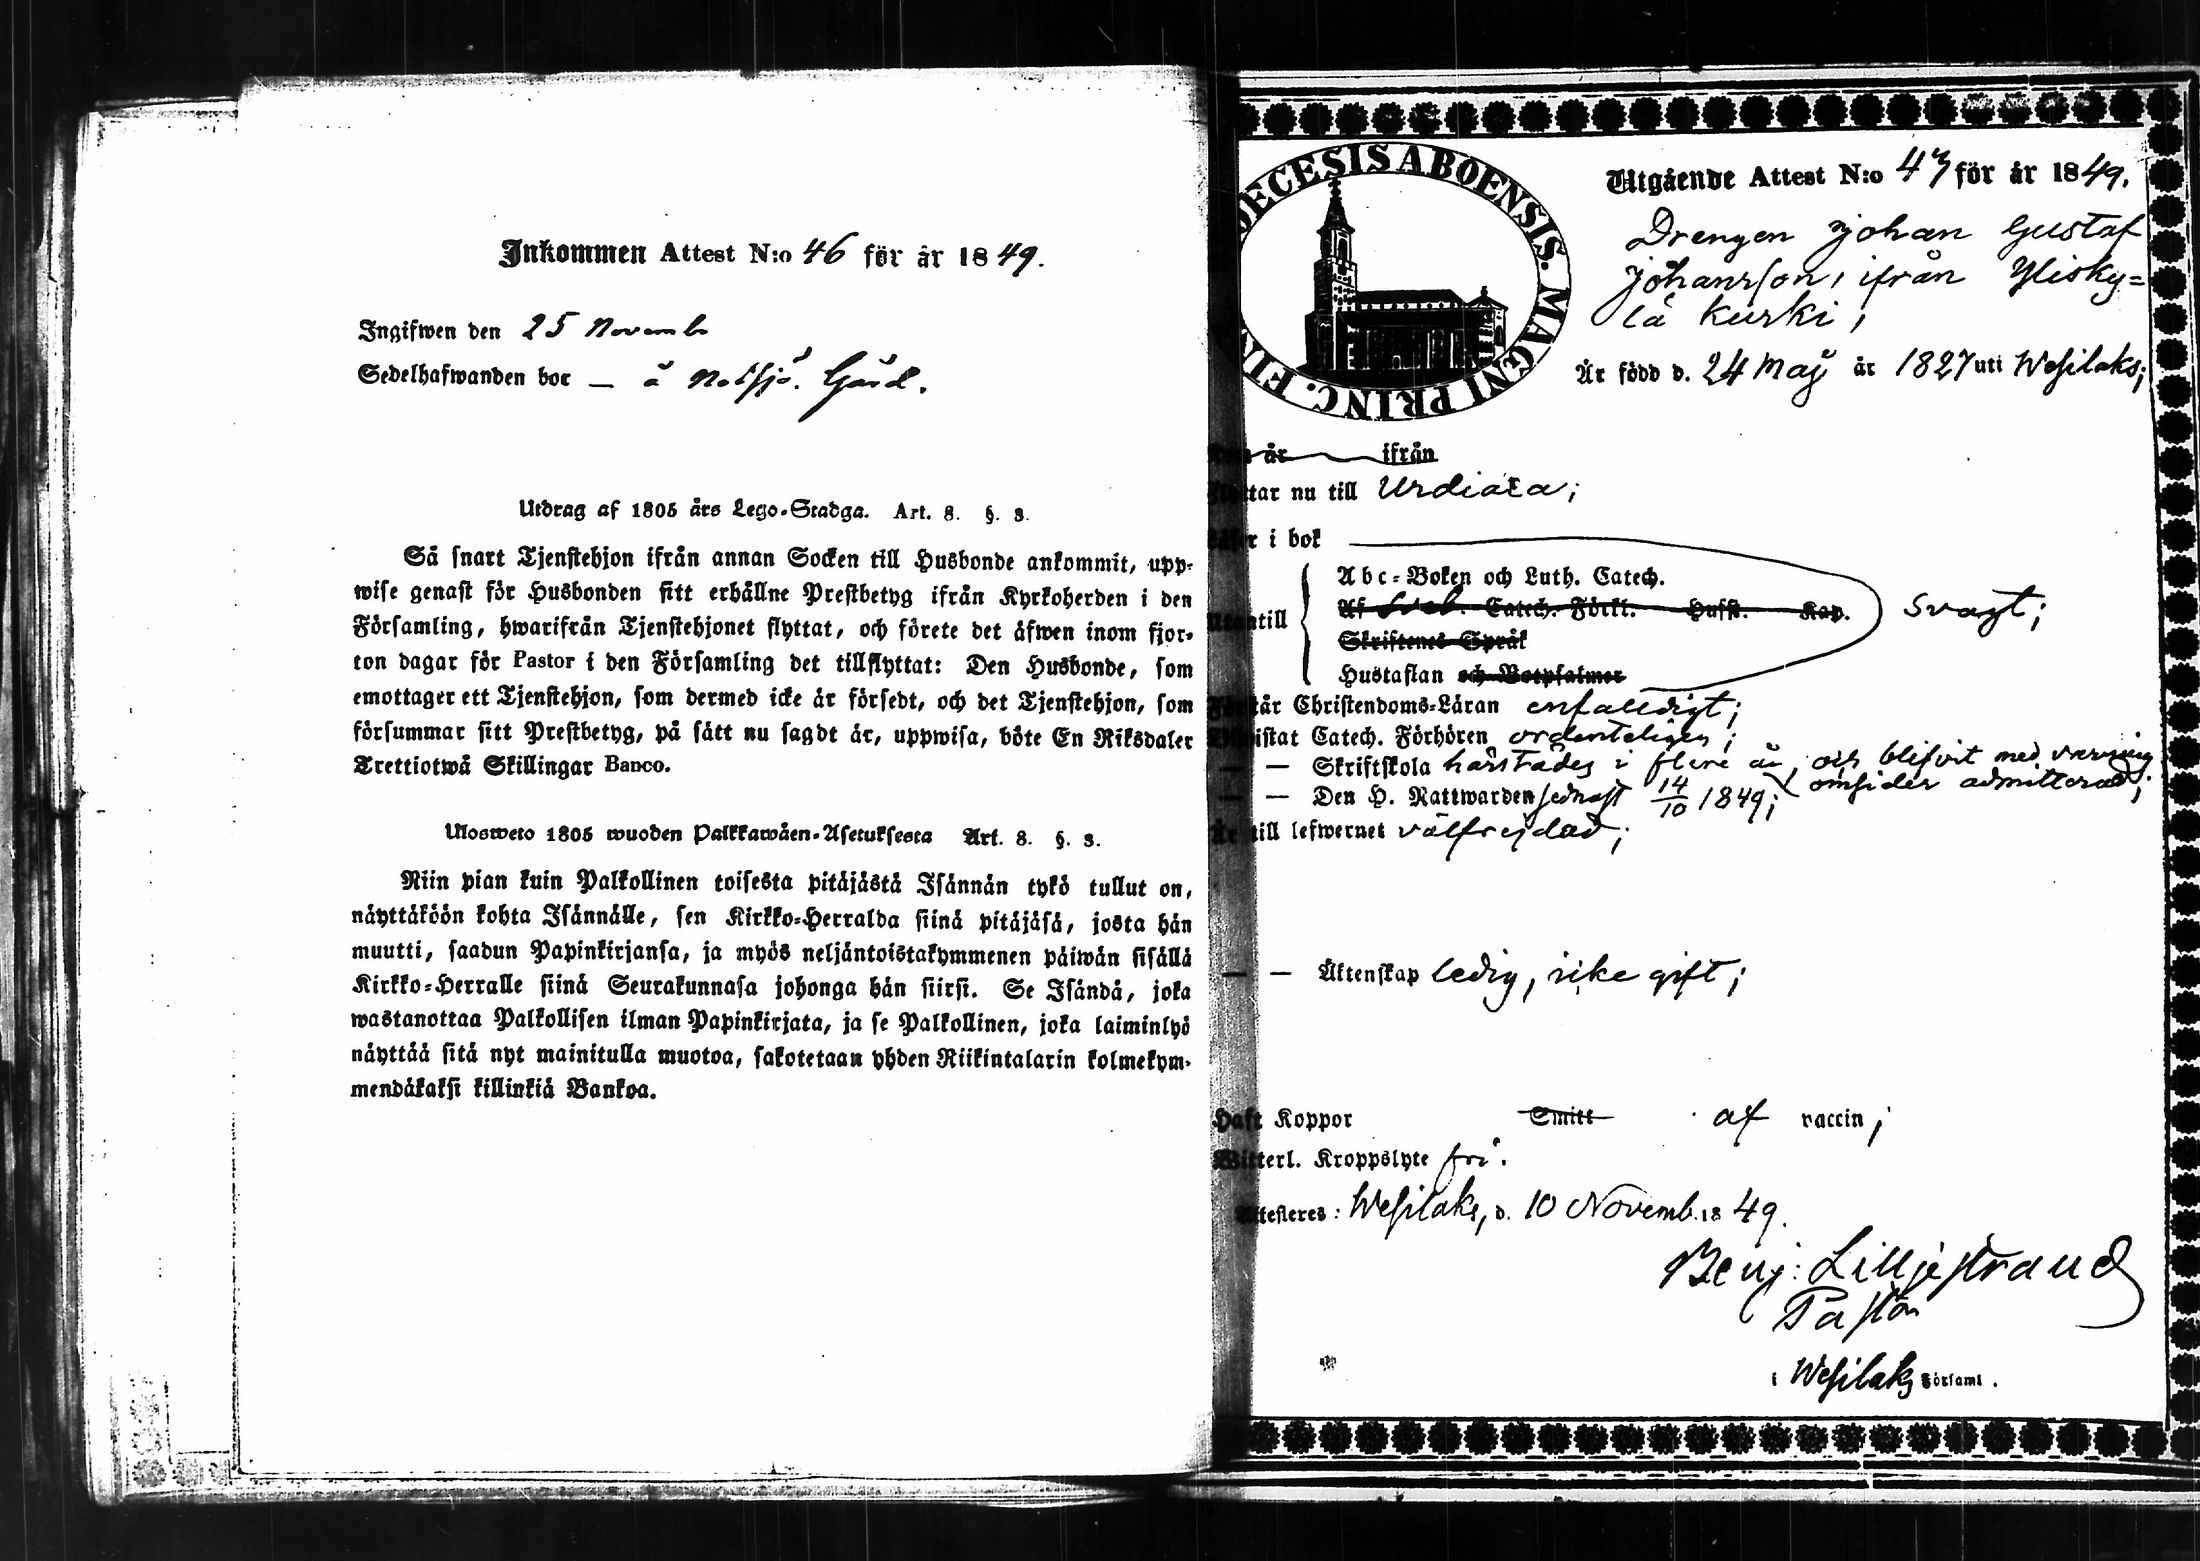 Inkommen Attest N:o 46 för år 1849.
Ingifwen den 25 Novemb
Sedelhafwanden bor — å Notsjö Gård.
Utdrag af 1805 års Lego-Stadga. Art. 8. §. 3.
Så snart Tjenstehjon ifrån annan Socken till Husbonde ankommit, upp-
wise genast för Husbonden sitt erhållne Prestbetyg ifrån Kyrkoherden i den
Församling, hwarifrån Tjenstehjonet flyttat, och förete det äfwen inom fjor-
ton dagar för Pastor i den Församling det tillflyttat: Den Husbonde, som
emottager ett Tjenstehjon, som dermed icke är försedt, och det Tjenstehjon, som
försummar sitt Prestbetyg, på sätt nu sagdt är, uppwisa, böte En Riksdaler
Trettiotwå Skillingar Banco.
Ulosweto 1805 wuoden Palkkawäen-Asetuksesta Art. 8. §. 3.
Niin pian kuin Palkollinen toisesta pitäjästä Isännän tykö tullut on,
näyttäköön kohta Isännälle, sen Kirkko-Herralda siinä pitäjäsä, josta hän
muutti, saadun Papinkirjansa, ja myös neljäntoistakymmenen päiwän sisällä
Kirkko-Herralle siinä Seurakunnasa johonga hän siirsi. Se Isändä, joka
wastanottaa Palkollisen ilman Papinkirjata, ja se Palkollinen, joka laiminlyö
näyttää sitä nyt mainitulla muotoa, sakotetaan yhden Riikintalarin kolmekym-
mendäkaksi killinkiä Bankoa.
DECESIS ABOENSIS. MAGNI PRINC. FIN
Utgående Attest N:o 47 för år 1849.
Drengen Johan Gustaf
Johansson, ifrån Ylisky=
lä Kurki;
Är född d. 24 Maÿ år 1827 uti Wesilaks;
år ifrån
Flyttar nu till Urdiala;
Läser i bok
Abc-Boken och Luth. Catech.
Utantill Af Sveb. Catech. Förkl. Hufst. Kap. Svagt;
Skriftenes Språk
Hustaflan och Botpsalmer
Förstår Christendoms-Läran enfaldigt;
Bewistat Catech. Förhören ordenteligen;
— — Skriftskola härstädes i flere år, och blifvit med varning
omsider admitterad;
— — Den H. Nattwarden sednast 14/10 1849;
Är till lefwernet välfrejdad;
— — Äktenskap ledig, icke gift;
Haft Koppor Smitt af vaccin;
Witterl. Kroppslyte fri.
Attesteres: Wesilaks, d. 10 Novemb. 1849.
Benj: Lilljestrand
Pastor
i Wesilaks Församl.